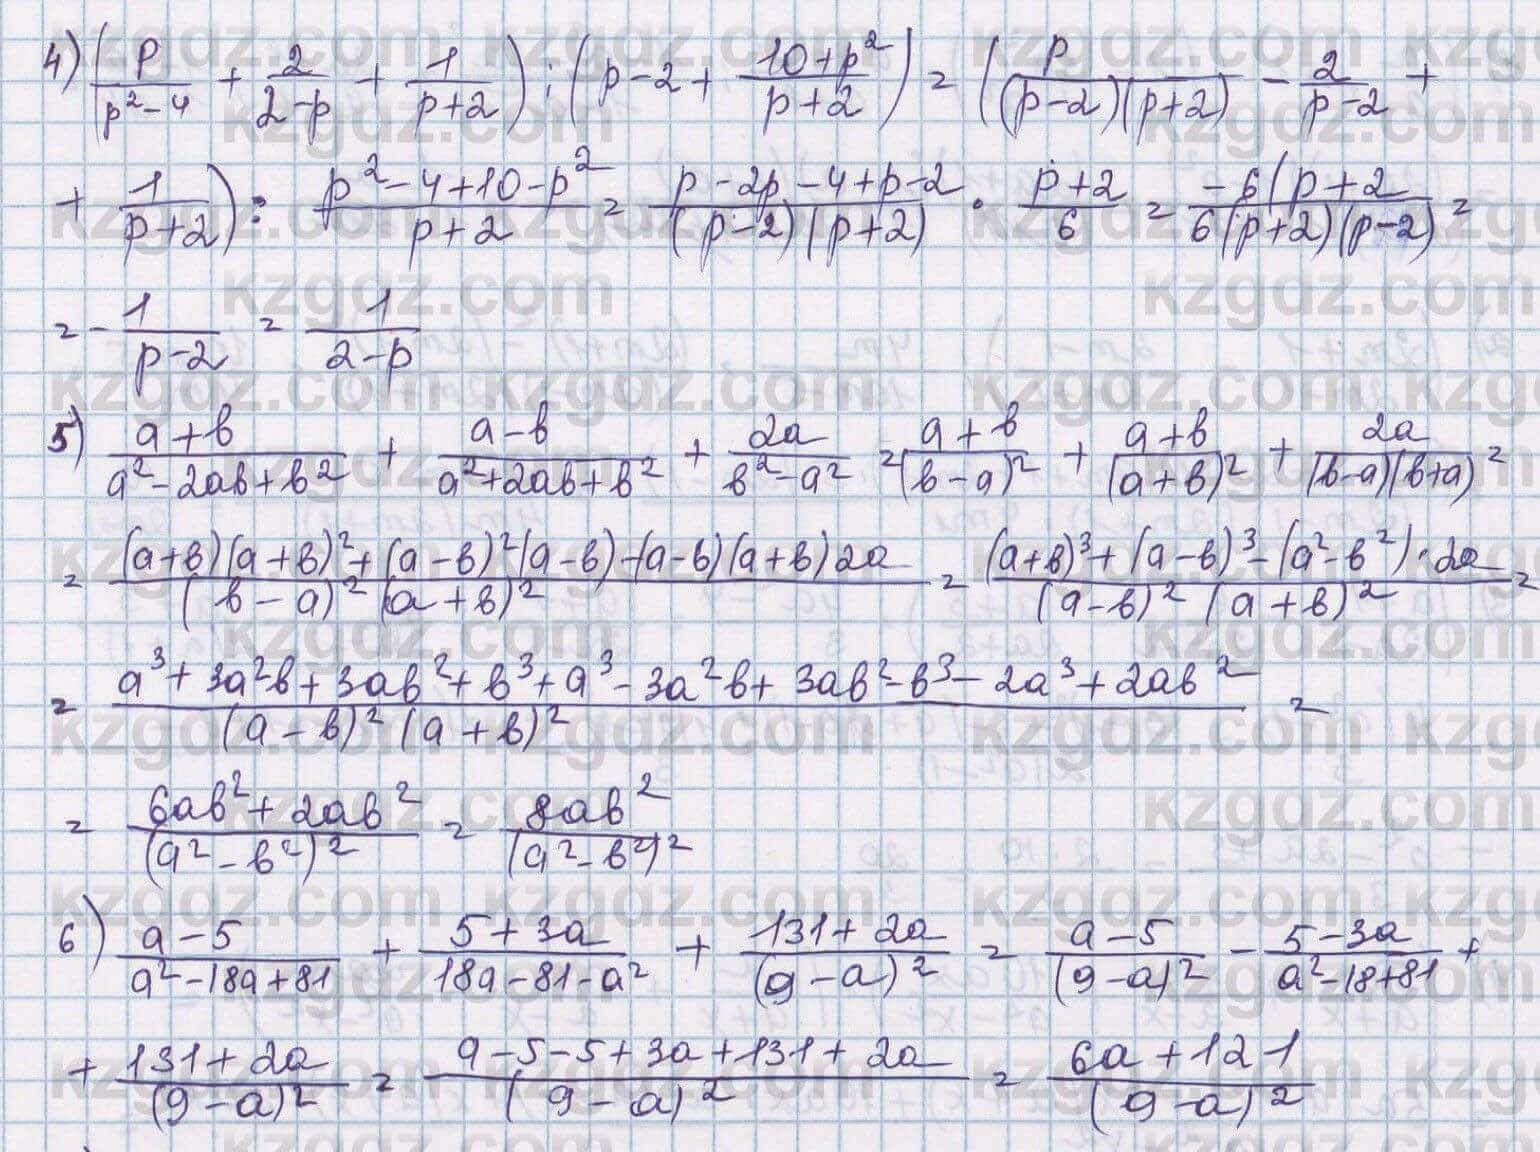 4) (p/(p²-4) + 2/(2-p) + 1/(p+2)) : (p-2 + (10+p²)/(p+2)) = (p/((p-2)(p+2)) - 2/(p-2) +
+ 1/(p+2)) : (p²-4+10-p²)/(p+2) = (p-2p-4+p-2)/((p-2)(p+2)) · (p+2)/6 = (-6(p+2)/(6(p+2)(p-2)) =
= -1/(p-2) = 1/(2-p)
5) (a+b)/(a²-2ab+b²) + (a-b)/(a²+2ab+b²) + 2a/(b²-a²) = (a+b)/(b-a)² + (a+b)/(a+b)² + 2a/((b-a)(b+a)) =
= ((a+b)(a+b)²+(a-b)²(a-b)-(a-b)(a+b)2a)/((b-a)²(a+b)²) = ((a+b)³+(a-b)³-(a²-b²)·2a)/((a-b)²(a+b)²) =
= (a³+3a²b+3ab²+b³+a³-3a²b+3ab²-b³-2a³+2ab²)/((a-b)²(a+b)²) =
= (6ab²+2ab²)/(a²-b²)² = 8ab²/(a²-b²)²
6) (a-5)/(a²-18a+81) + (5+3a)/(18a-81-a²) + (131+2a)/(9-a)² = (a-5)/(9-a)² - (5-3a)/(a²-18+81) +
+ (131+2a)/(9-a)² = (a-5-5+3a+131+2a)/(9-a)² = (6a+121)/(9-a)²
kzgdz.com